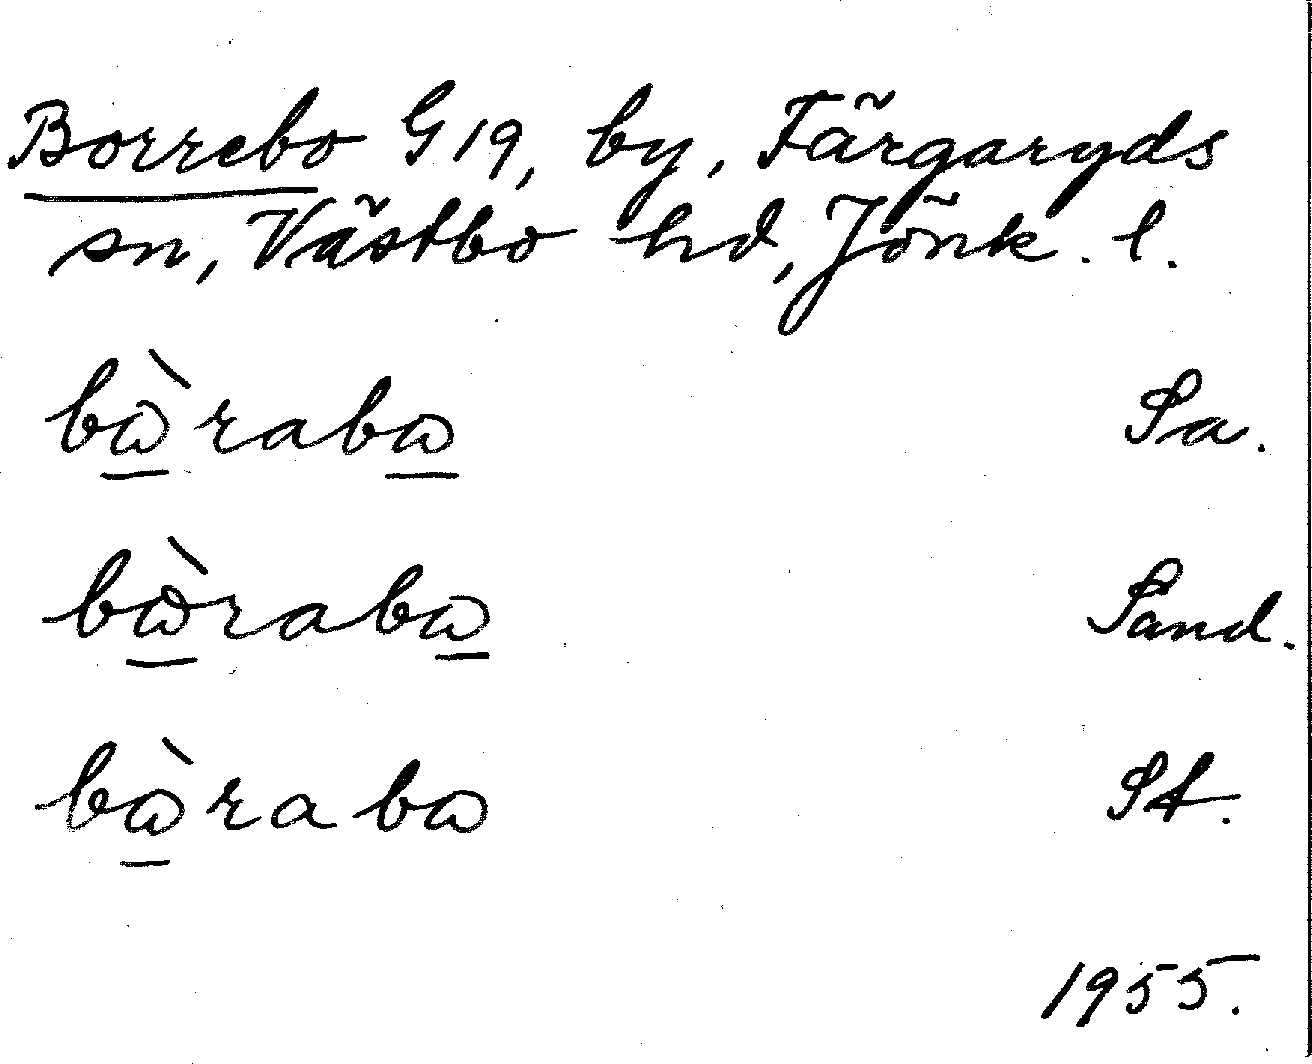 Borrebo G19, by, Färgaryds
sn, Västbo hd, Jönk. l.
bɷ̀rabɷ Sa.
bɷ̀rabɷ Sand.
bɷ̀rabɷ St.
1955.